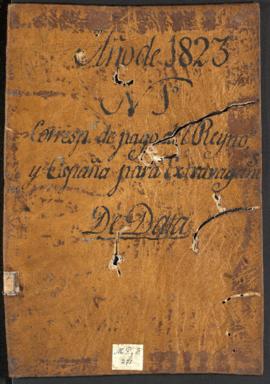 Año de 1823
Corresp. de pago del Reyno
y España para Extravagan
De Data